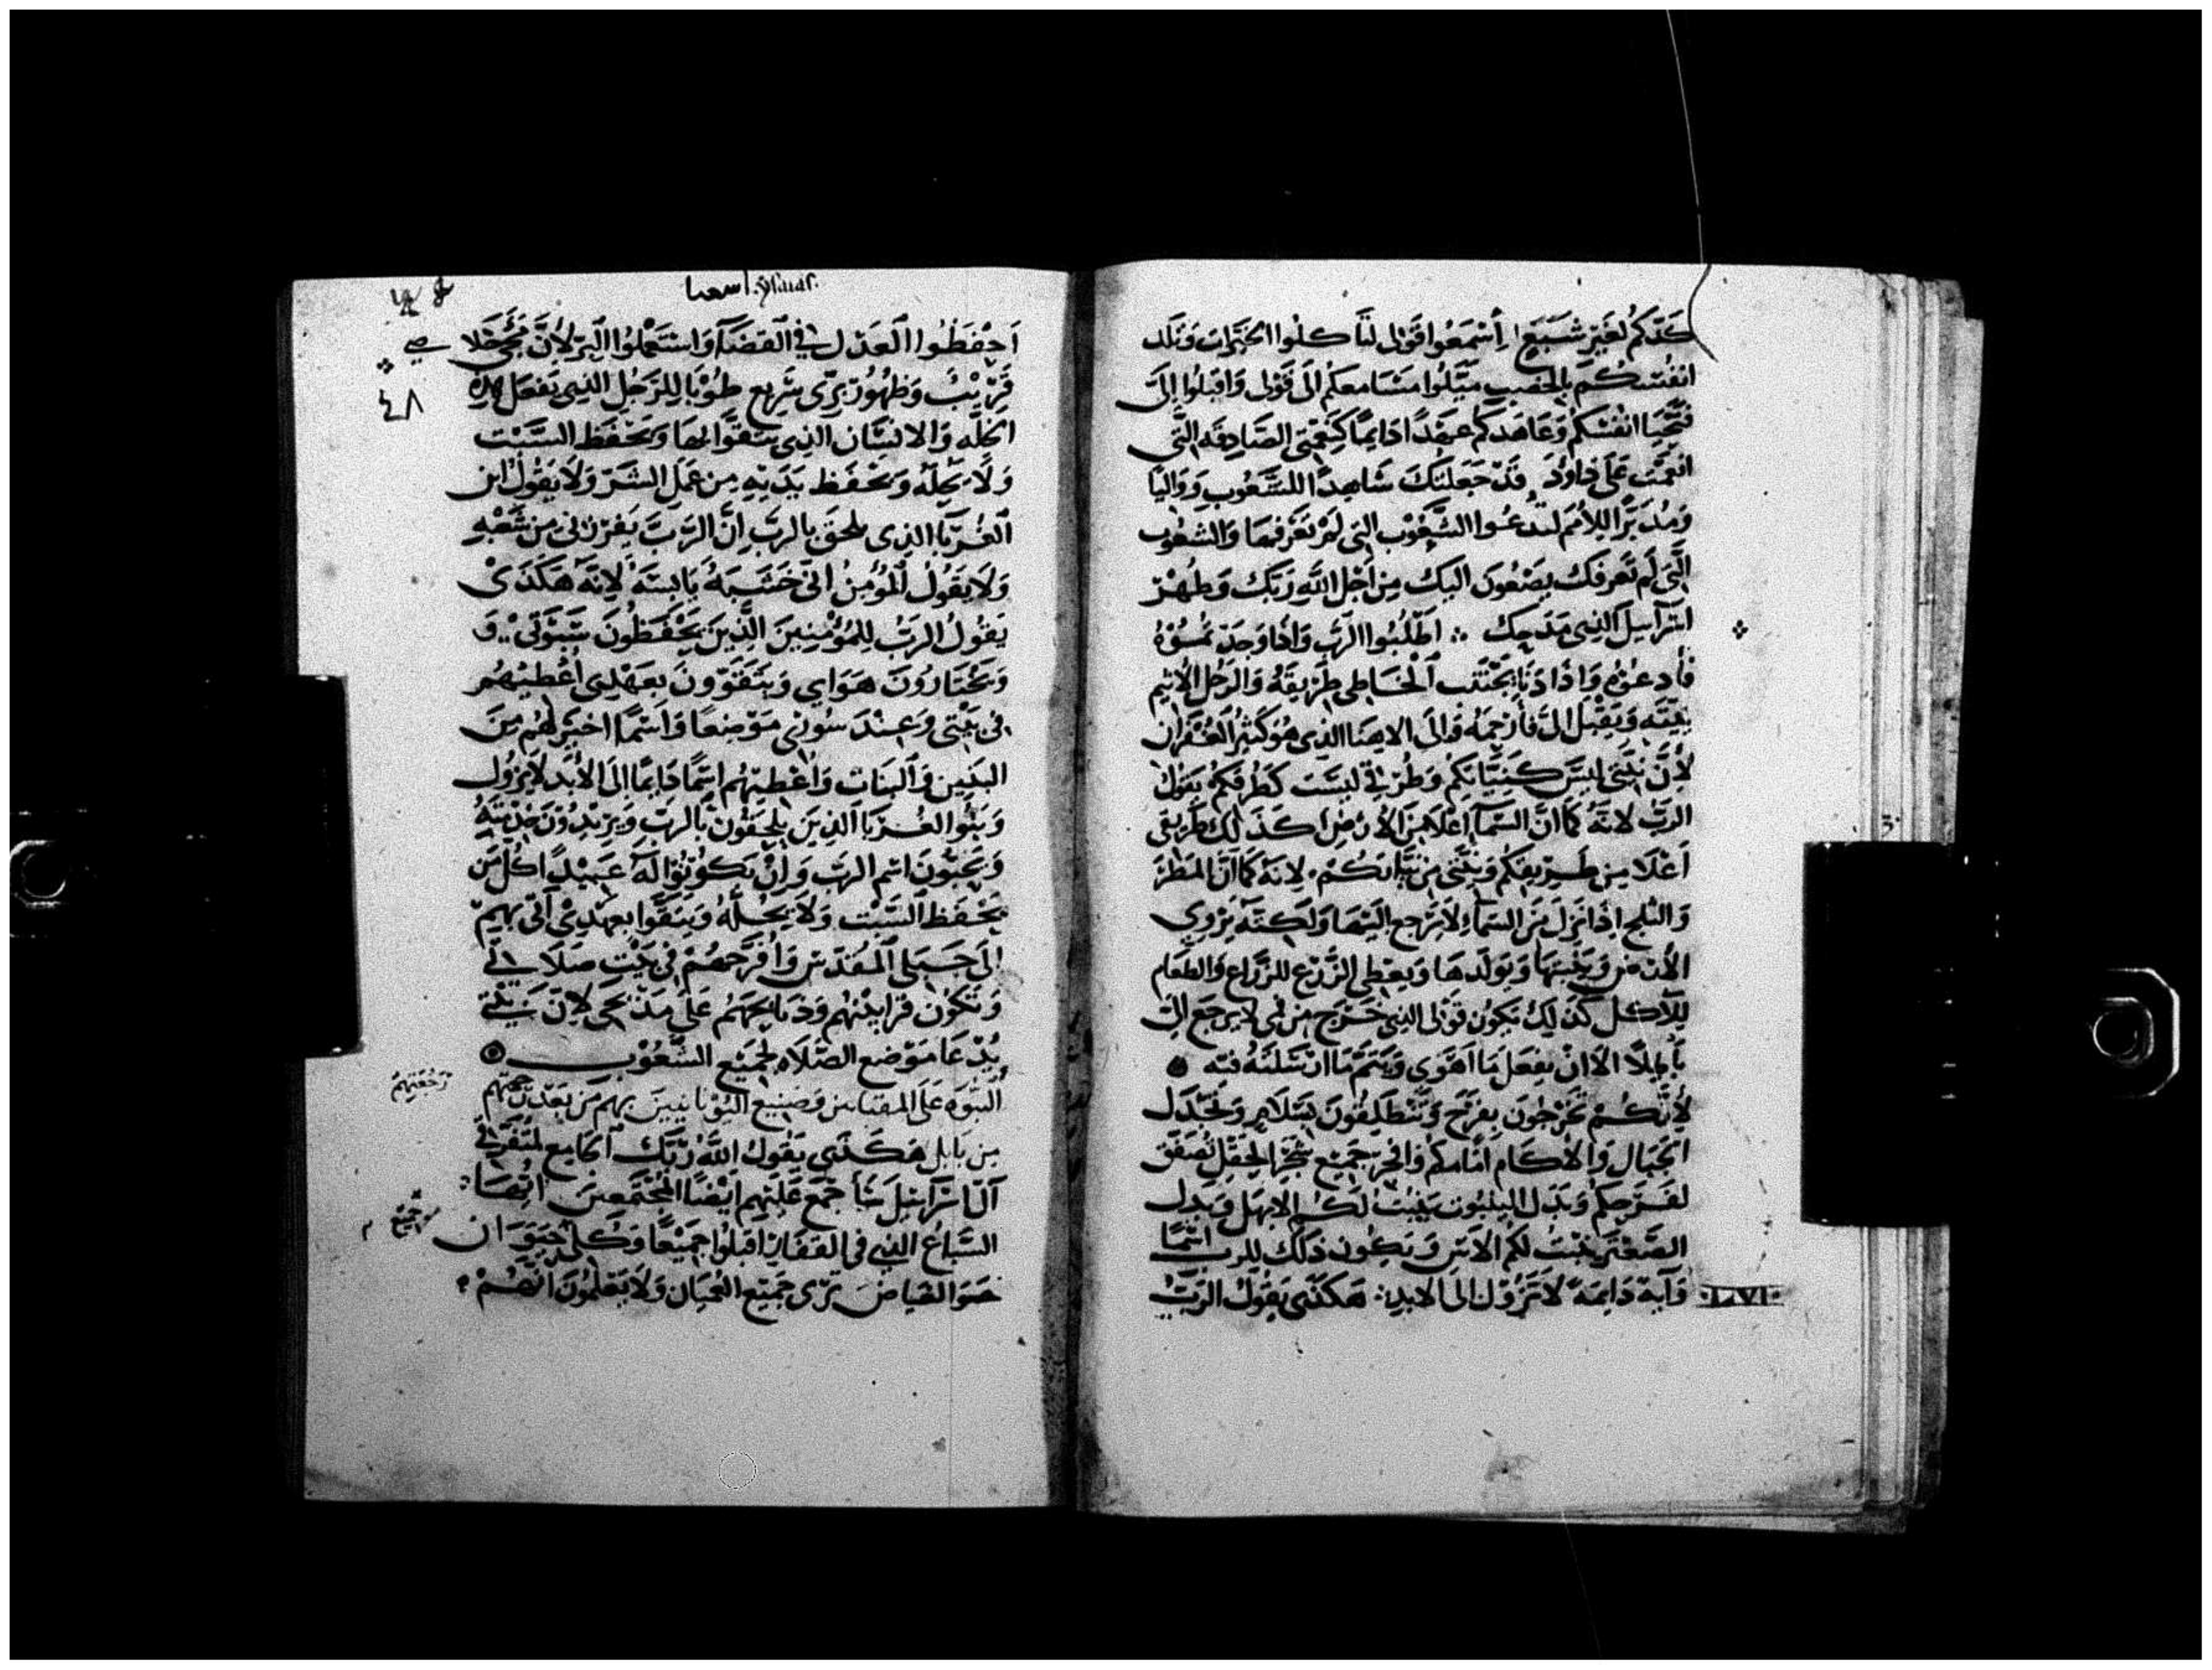 كَدّكم لغَير شَبَع اسْمَعُوا قَوْلى لتَاكلُوا الخيرَات وَتلد
انفُسكُم بالخصب مَيّلُوا مَسَامعكم الَى قَوْلى وَاقبلُوا الىَّ
فتَحيَا انفسكم وَعَاهدكم عَهدًا دَايمًا كَنعمَتى الصَادِقَه التّى
انعمْت عَلَى دَاوُد قَدْ جَعَلتكَ شَاهِدًا للشعُوب وَوَاليًا
وَمُدَبّرًا للامَم لتدعُوا الشّعُوب التى لَمْ تعَرفهَا وَالشعُوب
الَّتى لَم تَعرفك يصَغُونَ اليك مِن اجْل الله رَبّك وَطُهْر
اسْرَاييل الذِى مَدَحِك ܀ اطْلُبُوا الرَّب وَاذا وَجَدتمُوهُ
فَادعُوُه وَاذَا دَنَا يَجْتَنب الخَاطى طَرِيقَهُ وَالرَجُل الاثيم
نِيَّتَه وَيَقْبل الىَّ فَارْحِمهُ وَالَى الاهنَا الذِى هُوَ كَثِير الغُفْرَان
لاَنَّ نيَّتى ليسَ كنِيَّاتِكم وَطُرقى ليسَت كطُرقكم يَقول
الرَبّ لانَّهُ كَمَا انَّ السّمَآ اعْلَا مِن الارْض كذَلك طَرِيقى
اَعْلَا مِن طَرِيقكم وَنيَّتى مِن نيَّاتكُمْ لانهَ كَمَا انَّ المَطَر
وَالثلج اذَا نزَل مِنَ السّمَآء لَا يَرجع اليْهَا وَلَكِنّه يَرْوِى
الارْض وَينْبتهَا وَيولدهَا وَيعْطى الزَّرْع للزرَاع وَالطعَام
للآكل كَذلك تَكُون قَوْلى الذِى خَرَج مِن فمِى لَا يرجَع الىَّ
بَاطِلًا الَّا انْ يفعَل مَا اهْوَى وَيَتم مَا ارْسَلتهُ فيه
لانّكُمْ تخرجُونَ بفرَح وَتَنْطَلِقُونَ بسَلَامٍ وَتجدَل
الجبَال وَالاكَام امَامكم وَافْرح جَميع شَجَر الحقل تُصفق
لفَرحكم وَبدل البلبوت ينبُت لكم الابهل وَبدل
الصَعْتر ينبُت لكم الآس وَيَكون ذَلك للرب اسْمًا
وَآيه دَايمَه لَا تَزُوْل الى الابد ܀ هكذى يقُول الرَبُّ
LVI
اسعيا
اَحْفَظُوا العَدْل فى القضَآ وَاسْتَعْمِلوُا البِرّ لاَنَّ مُخَلّا صى
قَرِيْبُ وَظهُوُر بِرّى سَرِيع طُوْبَا للرَّجُل الذِى يَفعَل هذه
الخلَّه وَالانسَان الذِى يَتَقَوّا بهَا وَيحْفَظ السَّبْت
وَلَا يحِلّه وَيَحْفَظ يَدَيْهِ مِن عَمَل الشرّ وَلَا يَقُول ابن
الغُربَا الذِى يلحَق بالرَبّ اِنَّ الرّبَّ يَفرزنى مِن شَعْبهِ
وَلَا يَقوُل المُؤمِن انّى خَشَبَهُ يَابسَه لانهَ هَكذَى
يَقوُل الرَّبُ لِلمُؤْمِنِينَ الَّذِينَ يَحْفَظُونَ سُبُوْتى وَ
وَيَخْتَارُونَ هَوَاى وَيتَقَوّونَ بعَهْدِى اعْطيْهُم
فى بَيْتى وَعِنْدَ سُورِى مَوْضعًا وَاسْمًا اخيَر لهُم مِن
البَنِين وَالبَنَات وَاعْطيهُم اسْمًا دَايمًا الَى الابَد لَا يَزُول
وَبَنُوا الغُرَبَا الذِينَ يَلحَقُون بالرَب وَيرِيْدُونَ خدْمَتِهُ
وَيَحبُّونَ اسْم الرَب وَانْ يَكُوْنُوْا لَهُ عَبيْدًا كلّ مَن
يَحْفَظ السَّبْت وَلَا يَحُلَّهُ وَيَتقَوَّا بعهدِى آتى بهِم
الَى جَبَلى المُقدَّس وَافرّحهُمْ فى بَيْت صَلَاتى
وَتَكُون قرَابينهُم وَذبَايحَهُم عَلَى مَذْبَحى لاِنّ بَيْتى
يُدْعَا مَوْضع الصَّلَاه لِجَميْع الشّعُوْب
النبُوَه عَلَى المقبَاين وَصَنِيع اليُوْنَانيينَ بهم مِن بَعْد رَجعتهم
رَجْعَتِهِم
مِن بَابل هَكَذَى يَقُول اللهُ رَبّك الجَامع لمُتفَرّقى
آل اسْرَاييل سَاجْمع عَلَيْهم ايْضًا المجْتَمعِين ايُّهَا
السّبَاع التى فى القفار اقبلُوا جَميْعًا وَكُل حَيَوَان
جميع
ترى جَميْع العُميَان وَلَا يَعْلمُونَ انّهُمْ